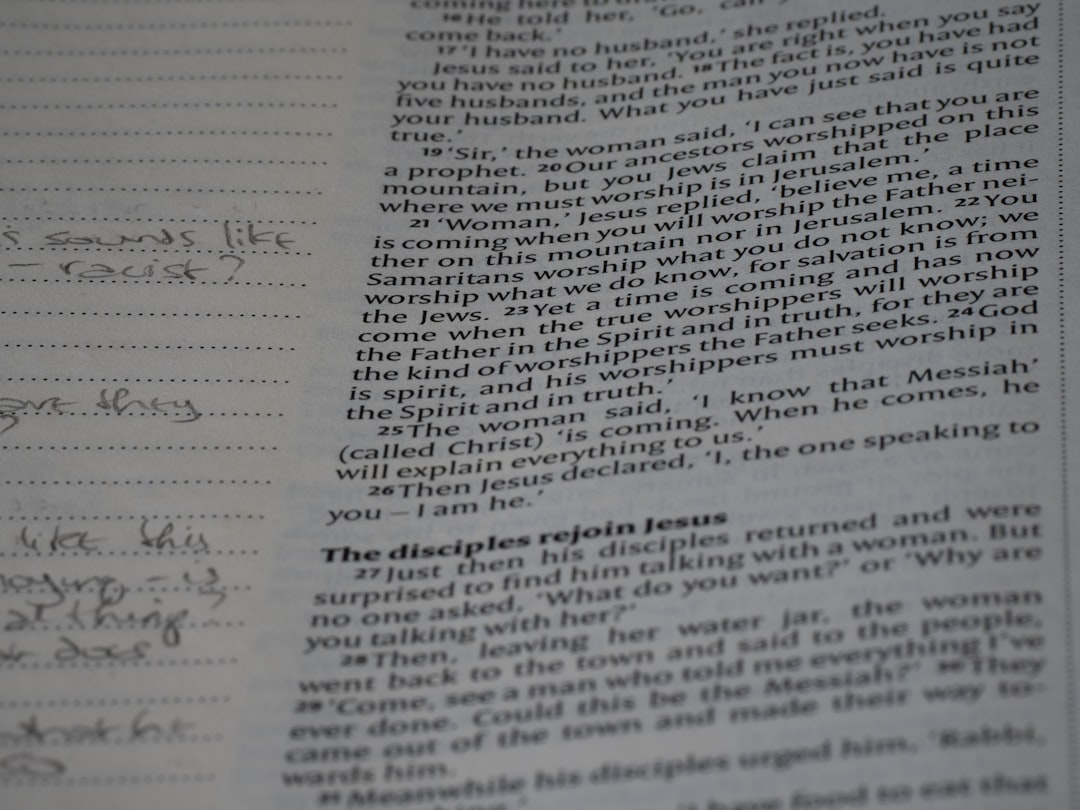 coming here to
16 He told her, 'Go, call y
come back.'
17 'I have no husband,' she replied.
Jesus said to her, 'You are right when you say
you have no husband. 18 The fact is, you have had
five husbands, and the man you now have is not
your husband. What you have just said is quite
true.'
19 'Sir,' the woman said, 'I can see that you are
a prophet. 20 Our ancestors worshipped on this
mountain, but you Jews claim that the place
where we must worship is in Jerusalem.'
21 'Woman,' Jesus replied, 'believe me, a time
is coming when you will worship the Father nei-
ther on this mountain nor in Jerusalem. 22 You
Samaritans worship what you do not know; we
worship what we do know, for salvation is from
the Jews. 23 Yet a time is coming and has now
come when the true worshippers will worship
the Father in the Spirit and in truth, for they are
the kind of worshippers the Father seeks. 24 God
is spirit, and his worshippers must worship in
the Spirit and in truth.'
25 The woman said, 'I know that Messiah'
(called Christ) 'is coming. When he comes, he
will explain everything to us.'
26 Then Jesus declared, 'I, the one speaking to
you – I am he.'
The disciples rejoin Jesus
27 Just then his disciples returned and were
surprised to find him talking with a woman. But
no one asked, 'What do you want?' or 'Why are
you talking with her?'
28 Then, leaving her water jar, the woman
went back to the town and said to the people,
29 'Come, see a man who told me everything I've
ever done. Could this be the Messiah?' 30 They
came out of the town and made their way to-
wards him.
31 Meanwhile his disciples urged him, 'Rabbi,
'I have food to eat that
sounds like
– racist?
they
like this
– is
thing
does